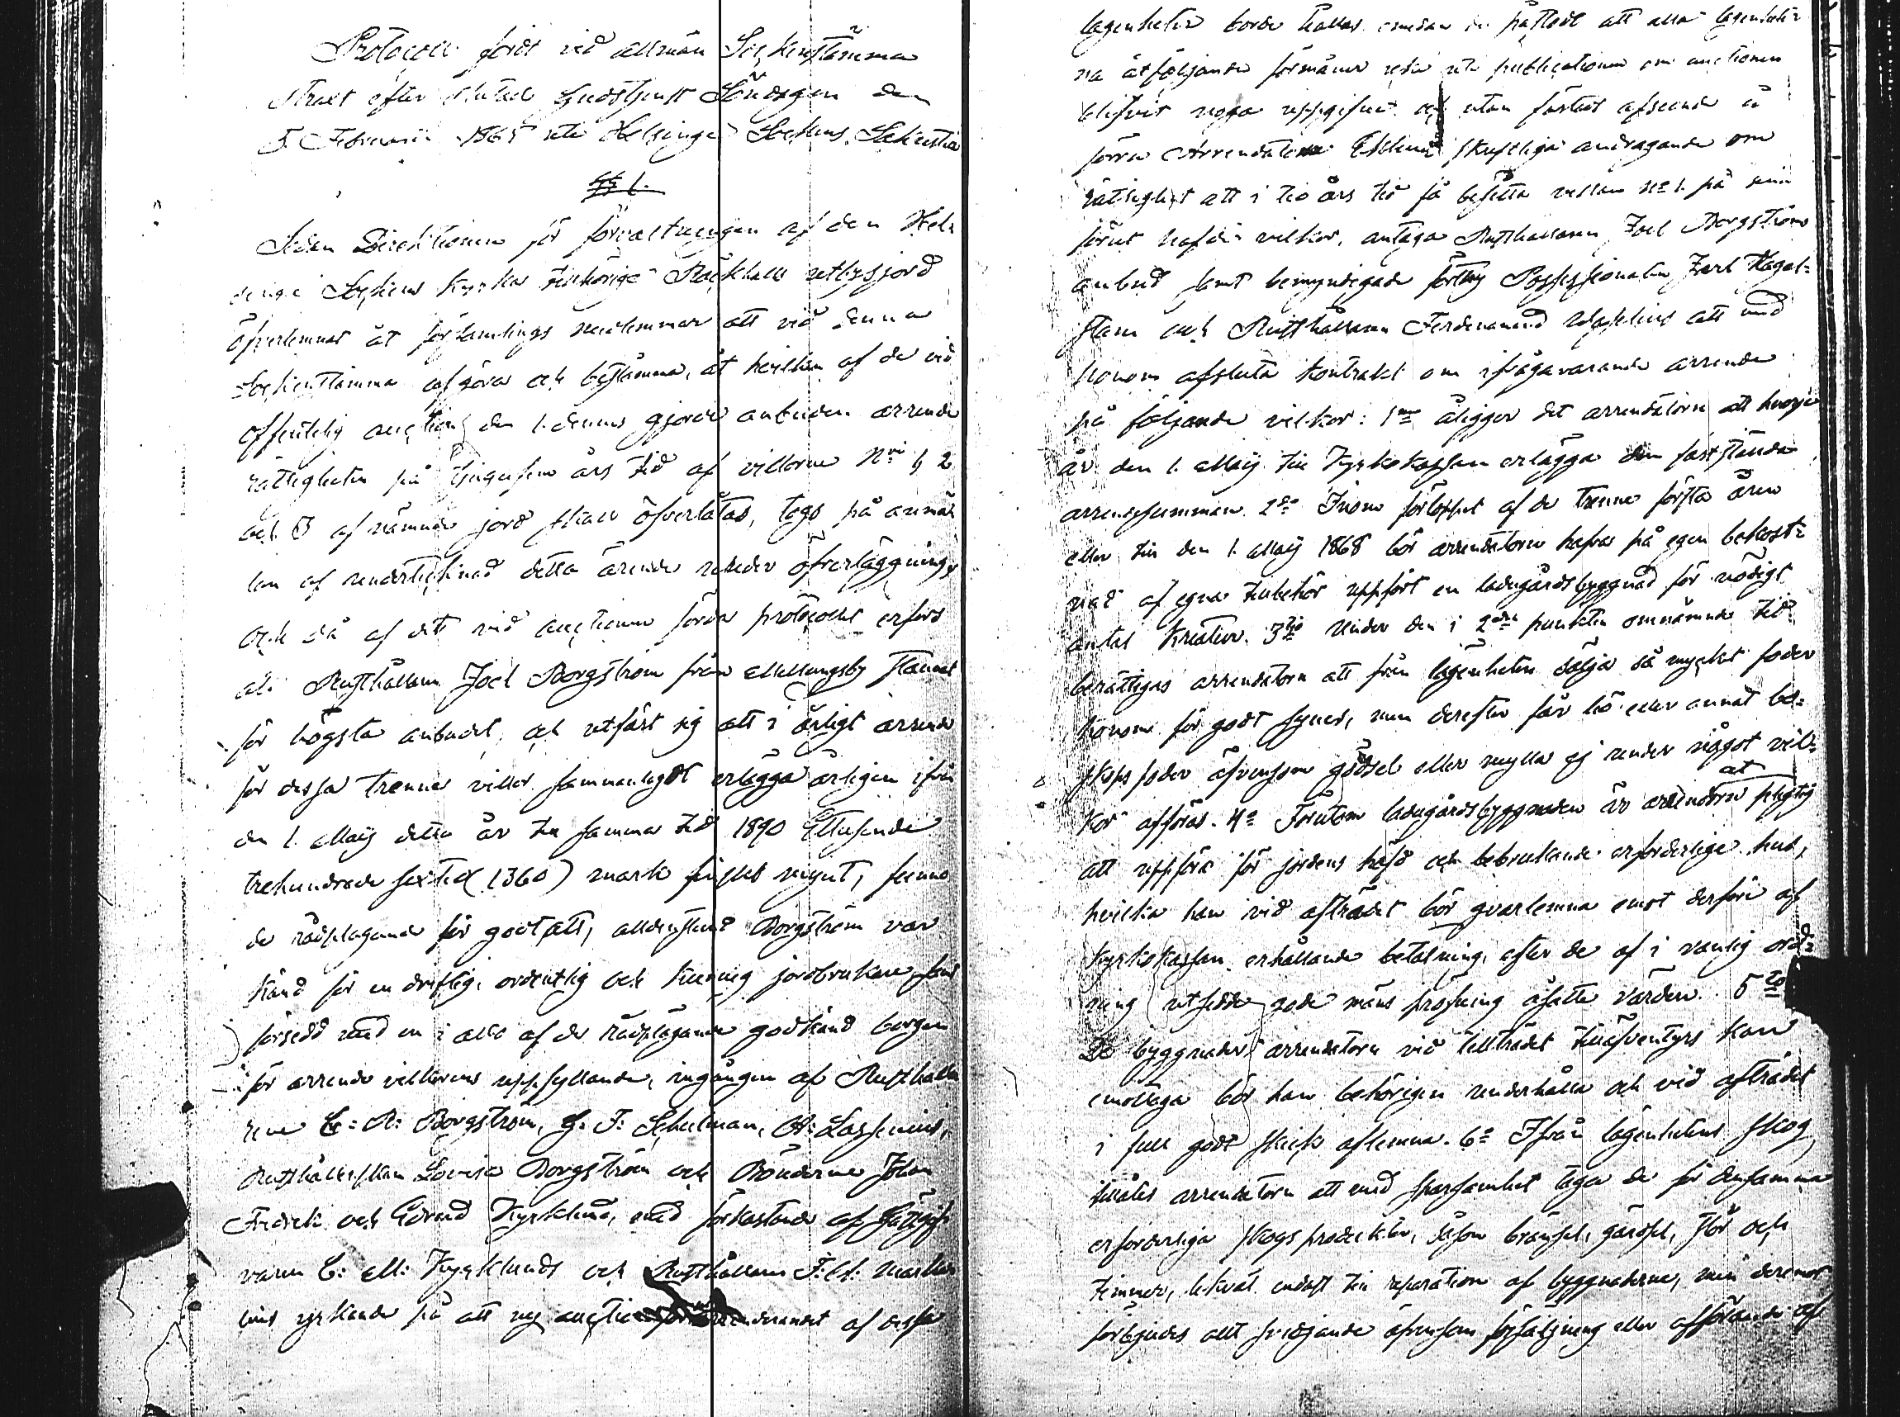 Protocoll fördt vid allmän Sockenstämma
straxt efter slutad Gudstjenst Söndagen den
5 Februarii 1865 uti Helsinge Sockens Sakristia
§ 1.
Sedan Direktionen för förvaltningen af den Hel-
singe Sockens kyrka tillhöriga Stäckhall utbysjord
öfverlemnat åt församlings medlemmar att vid denna
Sockenstämma afgöra och bestämma, åt hvilken af de vid
offentlig auction den 1. dennes gjorda anbuden arrende
rättigheten på tjugufem års tid af villorne Nris 1, 2
och 3 af nämnde jord skall öfverlåtas, togs på anmä-
lan af undertecknad detta ärende under öfverläggning,
och då af det vid auctionen förda protocoll erfors
att Rusthållaren Joel Borgström från Mellungsby stannat
för högsta anbudet, och utfäst sig att i årligt arrende
för dessa trenne villor sammanlagdt erlägga årligen ifrån
den 1. Maij detta år till samma tid 1890 Ettusende
trehundrade sextio (1360) mark finskt mynt, funno
de rådplägande för godt att, alldenstund Borgström var
känd för en driftig, ordentlig och kunnig jordbrukare samt
försedd med en i allo af de rådplägande godkänd borgen
för arrende villkorens uppfyllande, ingången af Rusthålla-
rene C: R: Borgström, G. F: Schulman, A: Lassenius,
Rusthållerskan Lovisa Borgström och Bönderne Johan
Fredrik och Edvard Kyrklund, med förkastande af Gästgif-
varen C: M: Kyrklunds och Rusthållaren F: Ed: Marke-
lins yrkande på att ny auction af dessa
lägenheter borde hållas emedan de påstodt att alla lägenheter-
na åtföljande förmåner icke uti publicationen om auctionen
blifvit noga uppgifne och utan fästadt afseende å
förra Arrendatorn Eklunds skriftliga andragande om
rättighet att i tio års tid få besitta villan No 1. på sina
förut hafda vilkor, antaga Rusthållaren Joel Borgströms
anbud samt bemyndigade förthy Possessionaten Karl Hagel-
stam och Rusthållaren Ferdinand Wasselius att med
honom afsluta kontrakt om ifrågavarande arrende
på följande vilkor: 1mo åligger det arrendatorn att hvarje
år den 1. Maij till kyrkokassan erlägga den fastställda
arrendesumman. 2do Inom förloppet af de trenne första åren
eller till den 1. Maij 1868 bör arrendatorn hafva på egen bekost-
nad af egna tillbehör uppfört en ladugårdsbyggnad för nödigt
antal kreatur. 3tio Under den i 2dra punkten omnämnda tid
berättigas arrendatorn att från lägenheten sälja så mycket foder
honom för godt synes, men derefter får hö eller annat bo-
skaps foder äfvensom gödsel eller mylla ej under något vil-
kor afföras. 4o Förutom ladugårdsbyggnaden är arrendatorn pligtig
att uppföra för jordens häfd och bebrukande erforderlige hus,
hvilka han vid afträdet bör qvarlemna emot derför af
Kyrkokassan erhållande betalning, efter de af i vanlig ord-
ning utsedde gode mäns pröfning åsatte värden. 5to
De byggnader arrendatorn vid tillträdet tilläfventyrs kan
emottaga bör han behörigen underhålla och vid afträdet
i full godt skick aflemna. 6o Ifrån lägenhetens skog
tillåtes arrendatorn att med sparsamhet taga de för densamma
erforderliga skogs produkter, såsom bränsel, gärdsel, stör och
timmer, likväl endast till reparation af byggnaderne, men deremot
förbjudes allt svedjande äfvensom försäljning eller afförande af